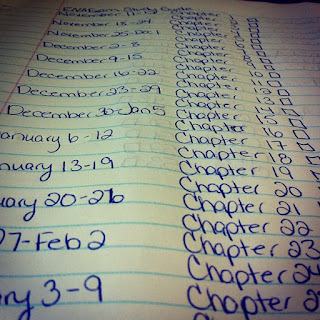 Exam Study Guide
November 11-17
November 18-24
November 25-Dec 1
December 2-8
December 9-15
December 16-22
December 23-29
December 30-Jan5
anuary 6-12
uary 13-19
uary 20-26
27-Feb 2
ry 3-9
Chapter
Chapter
Chapter
Chapter
Chapter
Chapter
Chapter
Chapter
Chapter 13
Chapter 14
Chapter 15
Chapter 16
Chapter 17
Chapter 18
Chapter 19
Chapter 20
Chapter 21
Chapter 22
Chapter 23
Chapter 24
Chapter